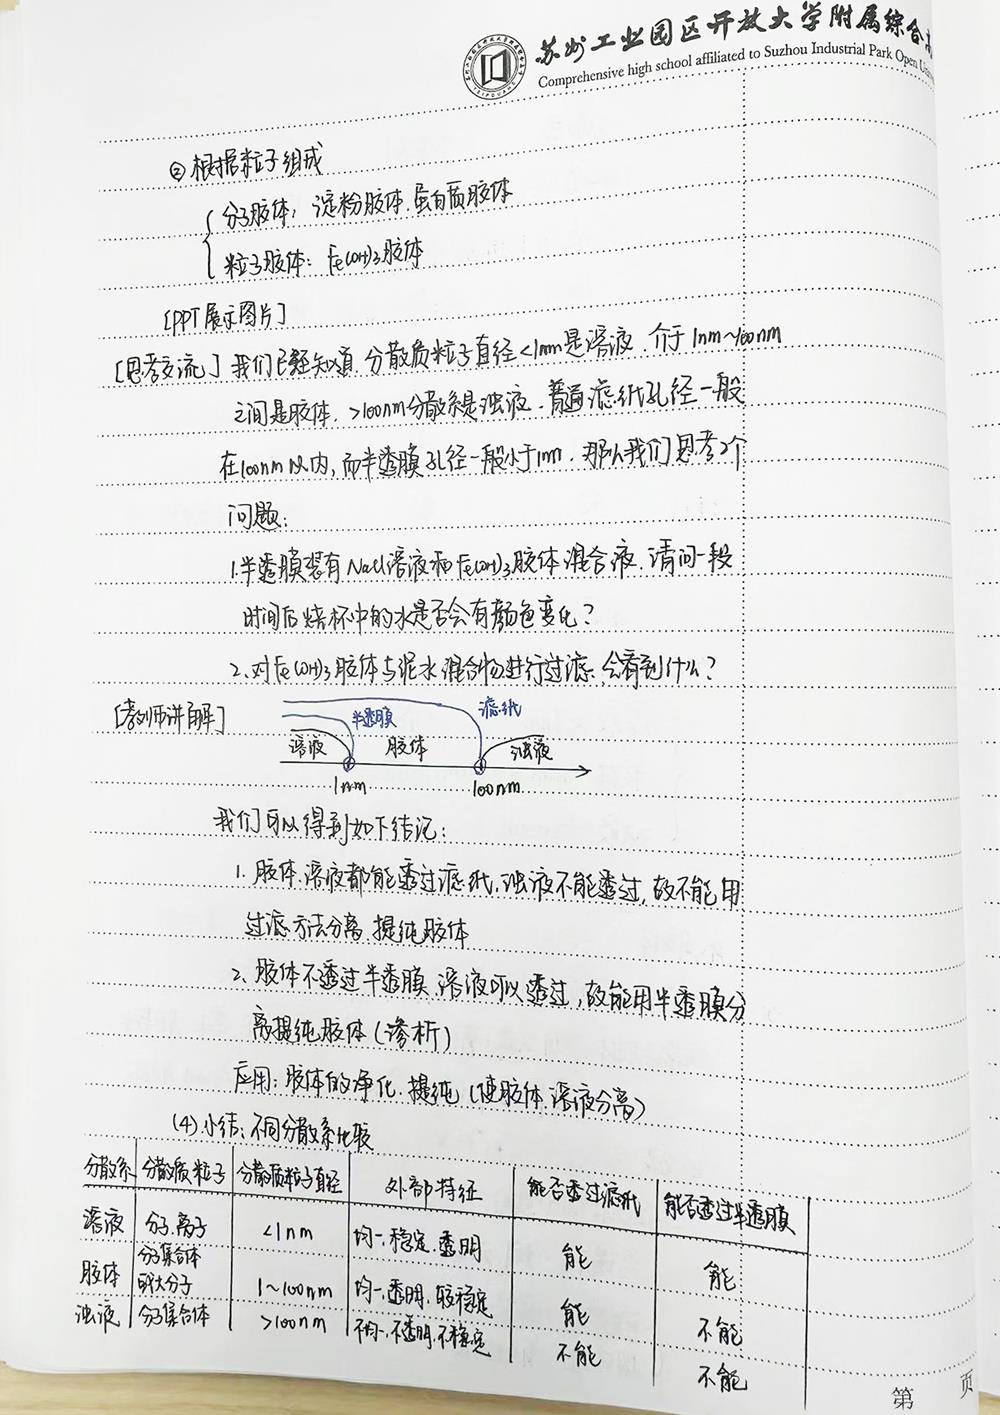 苏州工业园区开放大学附属综合高
Comprehensive high school affiliated to Suzhou Industrial Park Open Un
② 根据粒子组成
分子胶体：淀粉胶体、蛋白质胶体
粒子胶体：Fe(OH)₃胶体
[PPT展示图片]
[思考交流] 我们已经知道，分散质粒子直径<1nm是溶液，介于1nm~100nm
之间是胶体，>100nm分散系是浊液，普通滤纸孔径一般
在100nm以内，而半透膜孔径一般小于1nm，那么我们思考2个
问题：
1.半透膜装有NaCl溶液和Fe(OH)₃胶体混合液，请问一段
时间后烧杯中的水是否会有颜色变化？
2、对Fe(OH)₃胶体与泥水混合物进行过滤，会看到什么？
[教师讲解]
半透膜 滤纸
溶液 胶体 浊液
1nm 100nm
我们可以得到如下结论：
1. 胶体、溶液都能透过滤纸，浊液不能透过，故不能用
过滤方法分离、提纯胶体
2、胶体不透过半透膜，溶液可以透过，故能用半透膜分
离提纯胶体(渗析)
应用：胶体的净化、提纯（使胶体、溶液分离）
(4)小结：不同分散系比较
分散系 分散质粒子 分散质粒子直径 外部特征 能否透过滤纸 能否透过半透膜
溶液 分子、离子 <1nm 均一、稳定、透明 能 能
胶体 分子集合体 或大分子 1~100nm 均一、透明、较稳定 能 不能
浊液 分子集合体 >100nm 不均一、不透明、不稳定 不能 不能
第 页